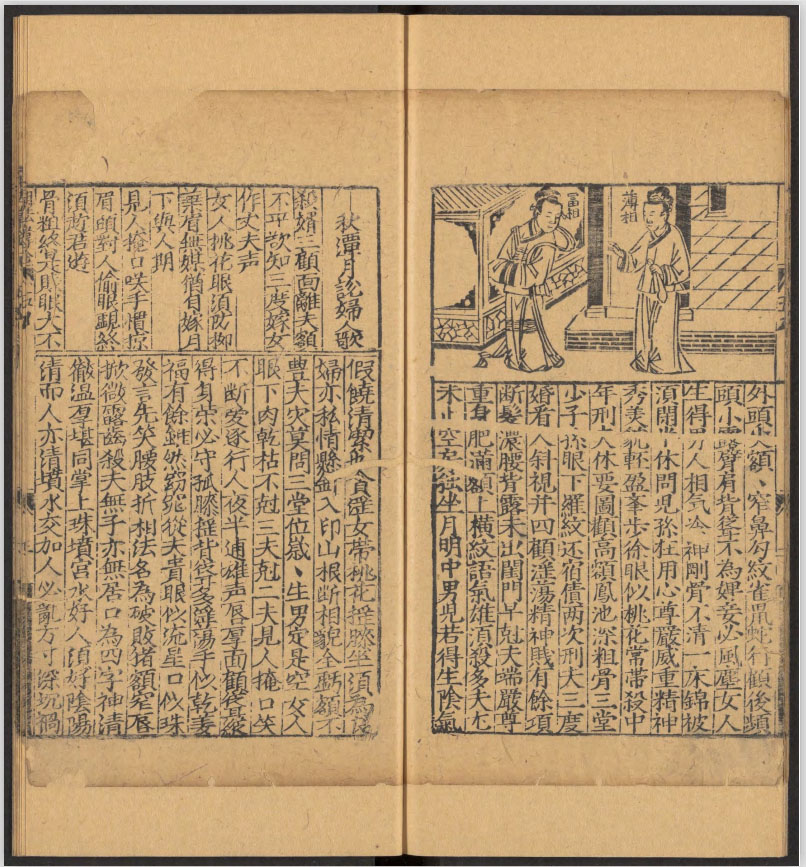 富相
薄相
外頭額、窄鼻勾紋雀鼠蛇行顧後頻
頭小露臂有背從不為婢妾必風塵女人
生得男人相氣冷神剛骨不清一床錦被
湏閑半休問児孫枉用心尊嚴威重精神
秀美貌軽盈峯步徐眼似桃花常帯殺中
年刑夫休要圖顴高額鳳池深粗骨三堂
少子孫眼下羅紋还宿債两次刑夫三度
婚看人斜視并四顧淫湯精神賎有餘項
断髮濃腰背露未出閨門早尅夫端嚴尊
重身肥滿額上橫紋語氣雄湏殺多夫
未止空房獨坐月明中男児若得生陰氣
秋潭月說婦人歌
殺婿三顧面離夫額
不平欲知三度嫁女
作丈夫声
女人桃花眼須防柳
葉眉無媒猶自嫁月
下與人期
見人掩口咲手慣掠
眉頭對人偷眼覷終
須趂君遊
骨粗終是賎眼大不
假饒清潔也貪淫女帶桃花搖膝坐須為淫
婦亦私情懸針入印山根断相貌全虧額不
豊夫災莫問三堂位歲、生男定是空女人
眼下肉乾枯不尅三夫尅二夫見人掩口笑
不断愛逐行人夜半逋雄声唇厚面顴
得身榮必守孤膝搖背後多淫蕩手似乾姜
福有餘雖然窈窕從夫貴眼似流星口似珠
發言先笑腰肢折相法名為破敗猪額窄唇
掀微露齒殺夫無子亦無居口為四字神清
徹温厚堪同掌上珠墳宮水好人須好陰陽
清而人亦清墳水交加人必亂方寸深沉禍